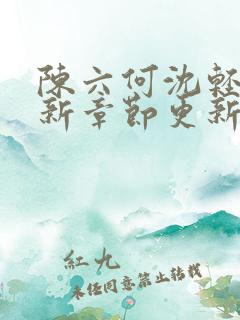 陳六何沈輕
新章節更新
紅九
未經同意禁止轉載